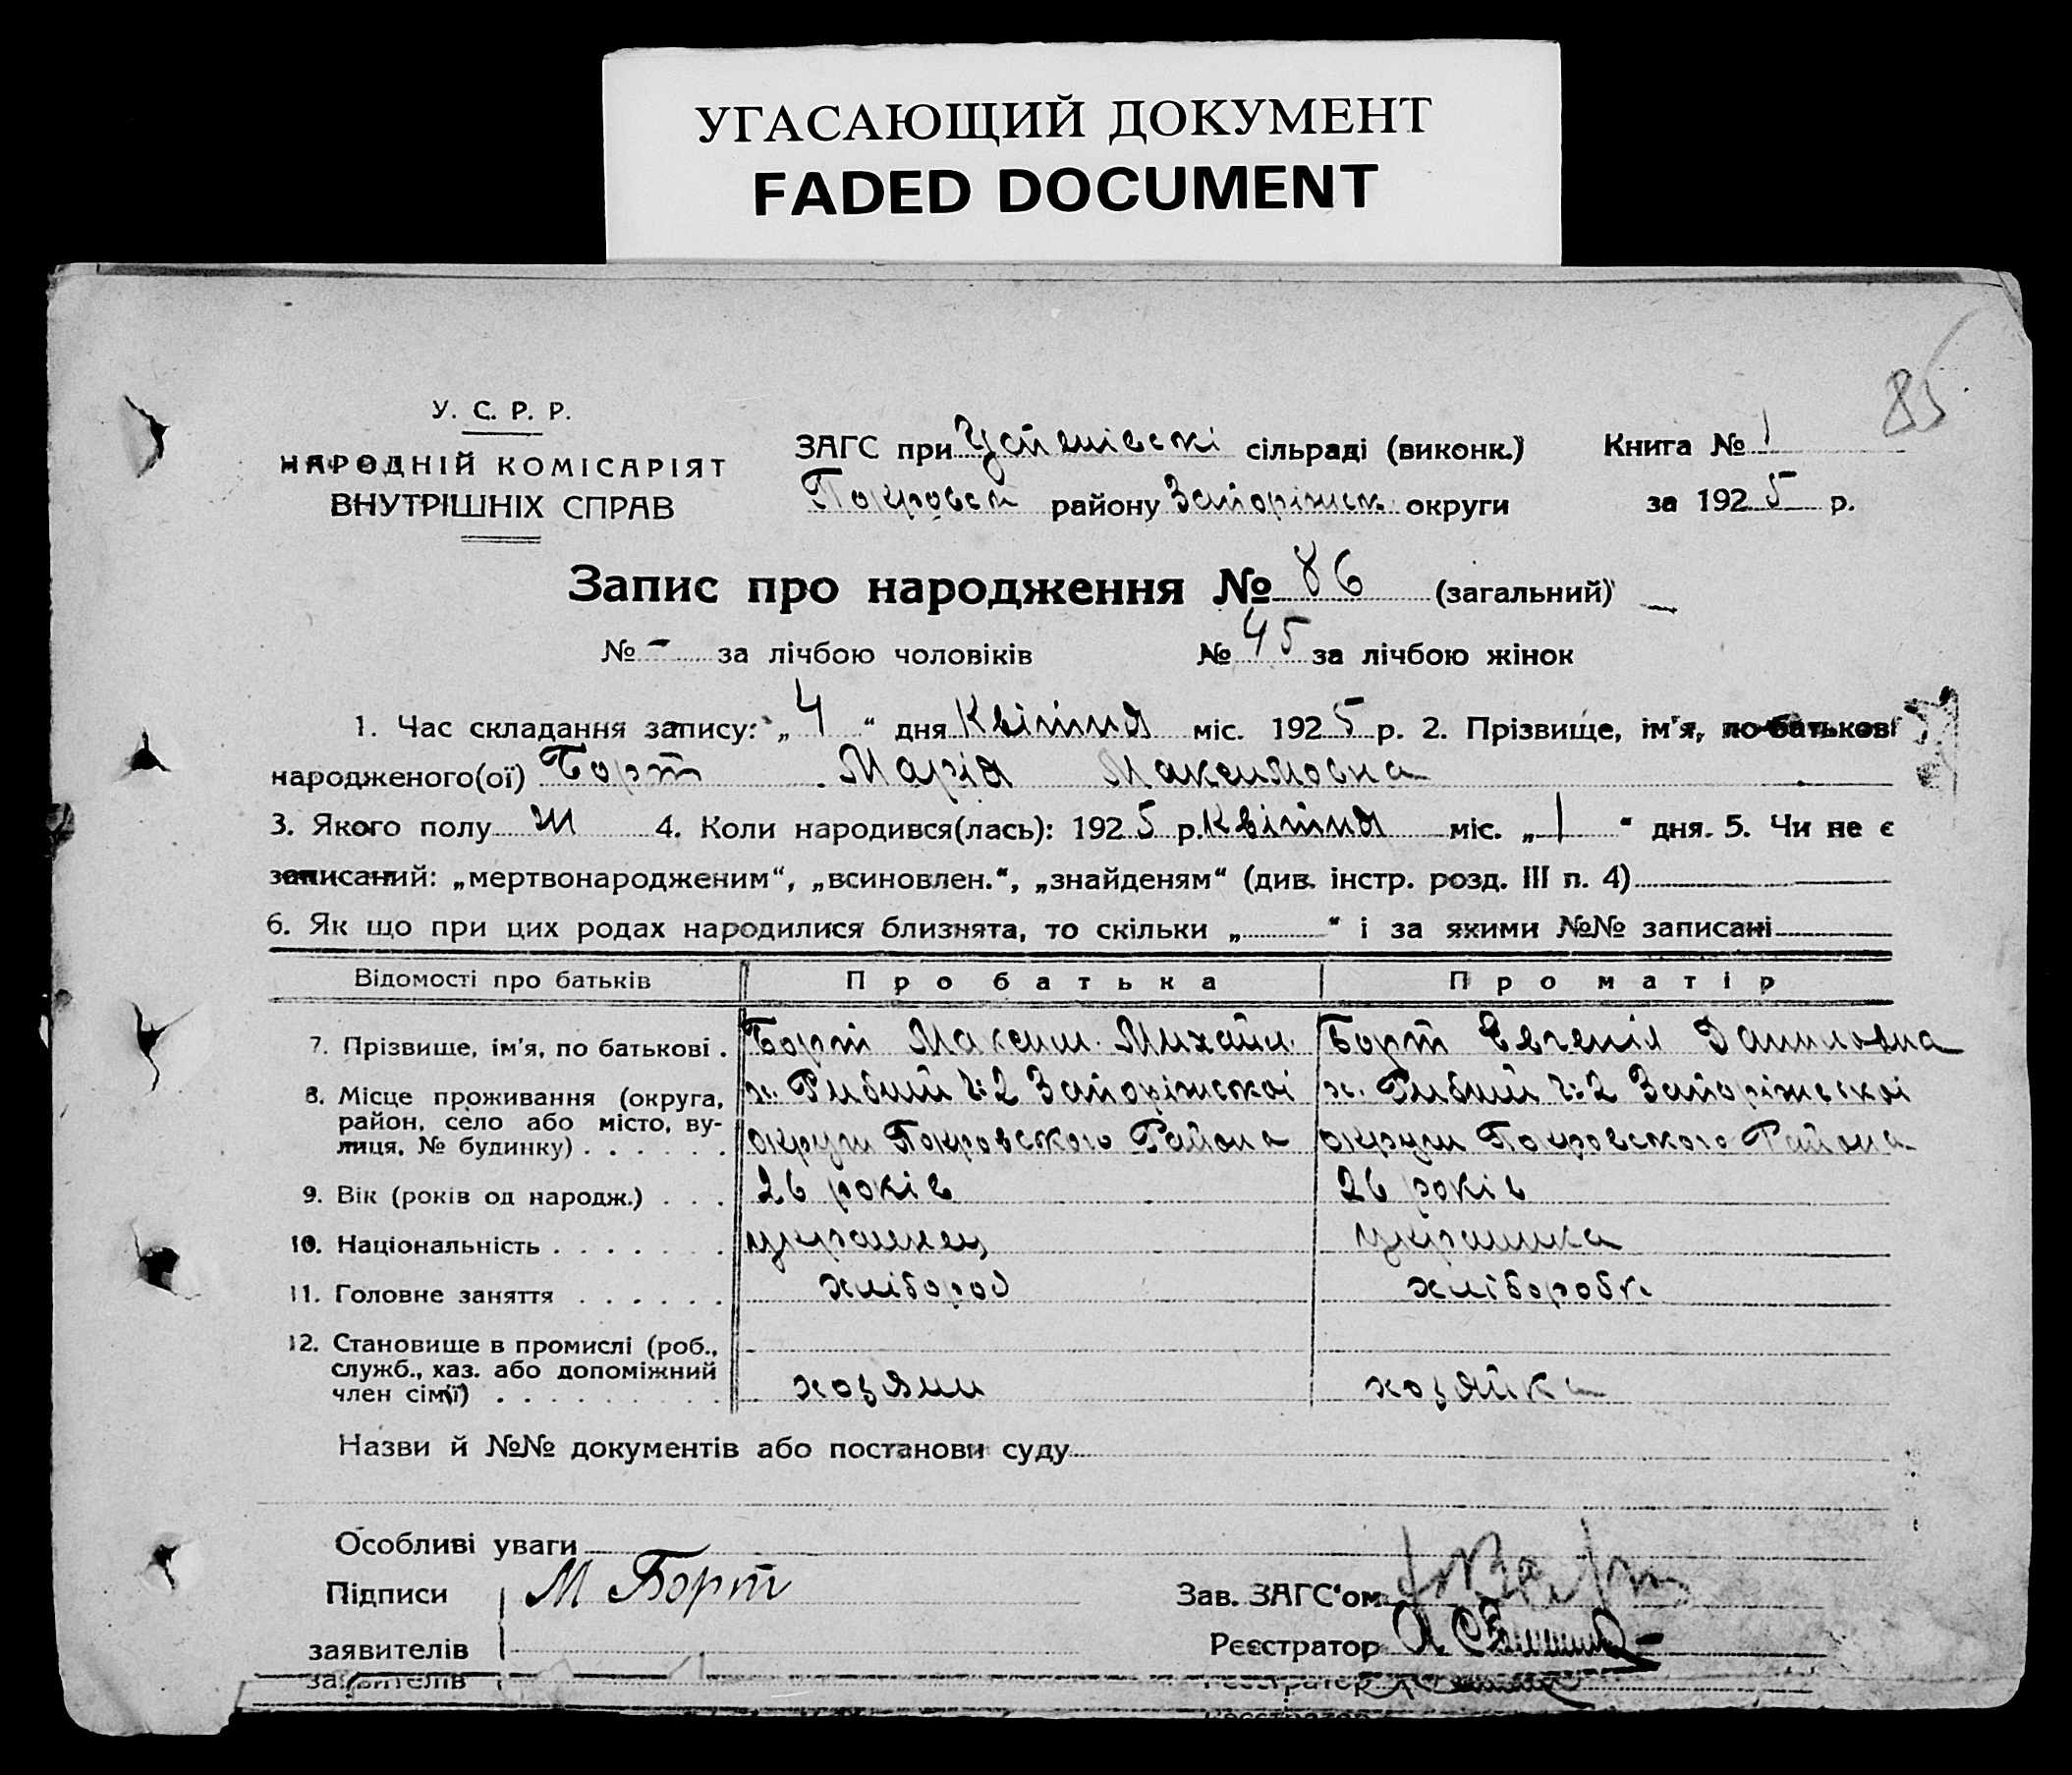 УГАСАЮЩИЙ ДОКУМЕНТ
FADED DOCUMENT
85
У. С. Р. Р.
НАРОДНІЙ КОМІСАРІЯТ
ВНУТРІШНІХ СПРАВ
ЗАГС при Успенівскі сільраді (виконк.) Книга № 1
Покровск району Запоріжск. округи за 1925 р.
Запис про народження № 86 (загальний)
№ - за лічбою чоловіків № 45 за лічбою жінок
1. Час складання запису: „4“ дня Квітня міс. 1925 р. 2. Прізвище, ім'я, по батькові
народженого(ої) Борт Марія Максимовна
3. Якого полу ж 4. Коли народився(лась): 1925 р. Квітня міс. „1“ дня. 5. Чи не є
записаний: „мертвонародженим“, „всиновлен.“, „знайденям“ (див. інстр. розд. III п. 4)
6. Як що при цих родах народилися близнята, то скільки „ “ і за якими №№ записані
Відомості про батьків Про батька Про матір
7. Прізвище, ім'я, по батькові . Борт Максим. Михайл. Борт Евгенія Даниловна
8. Місце проживання (округа, х. Рибний ч:2 Запоріжськоі х. Рибний ч:2 Запоріжськоі
район, село або місто, ву- округи Покровского Района округи Покровского Района
лиця, № будинку) . . . . . .
9. Вік (років од народж.) . . . 26 років 26 років
10. Національність . . . . . . . украинец украинка
11. Головне заняття . . . . . . хлібороб хлібороб
12. Становище в промислі (роб.,
служб., хаз. або допоміжний
член сім'ї) . . . . . . . . . хозяин хозяйка
Назви й №№ документів або постанови суду
Особливі уваги
Підписи М Борт Зав. ЗАГС'ом
заявителів Реєстратор
заявителів Реєстратор